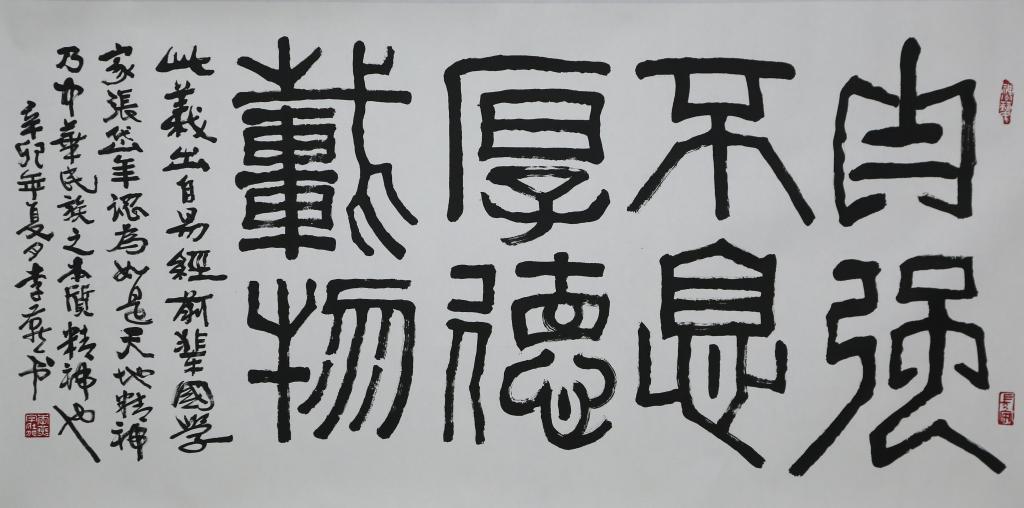 自强
不息
厚德
载物
此義出自易經前輩國學
家張岱年認為如是天地精神
乃中華民族之本質精神也
辛卯年夏月李 书